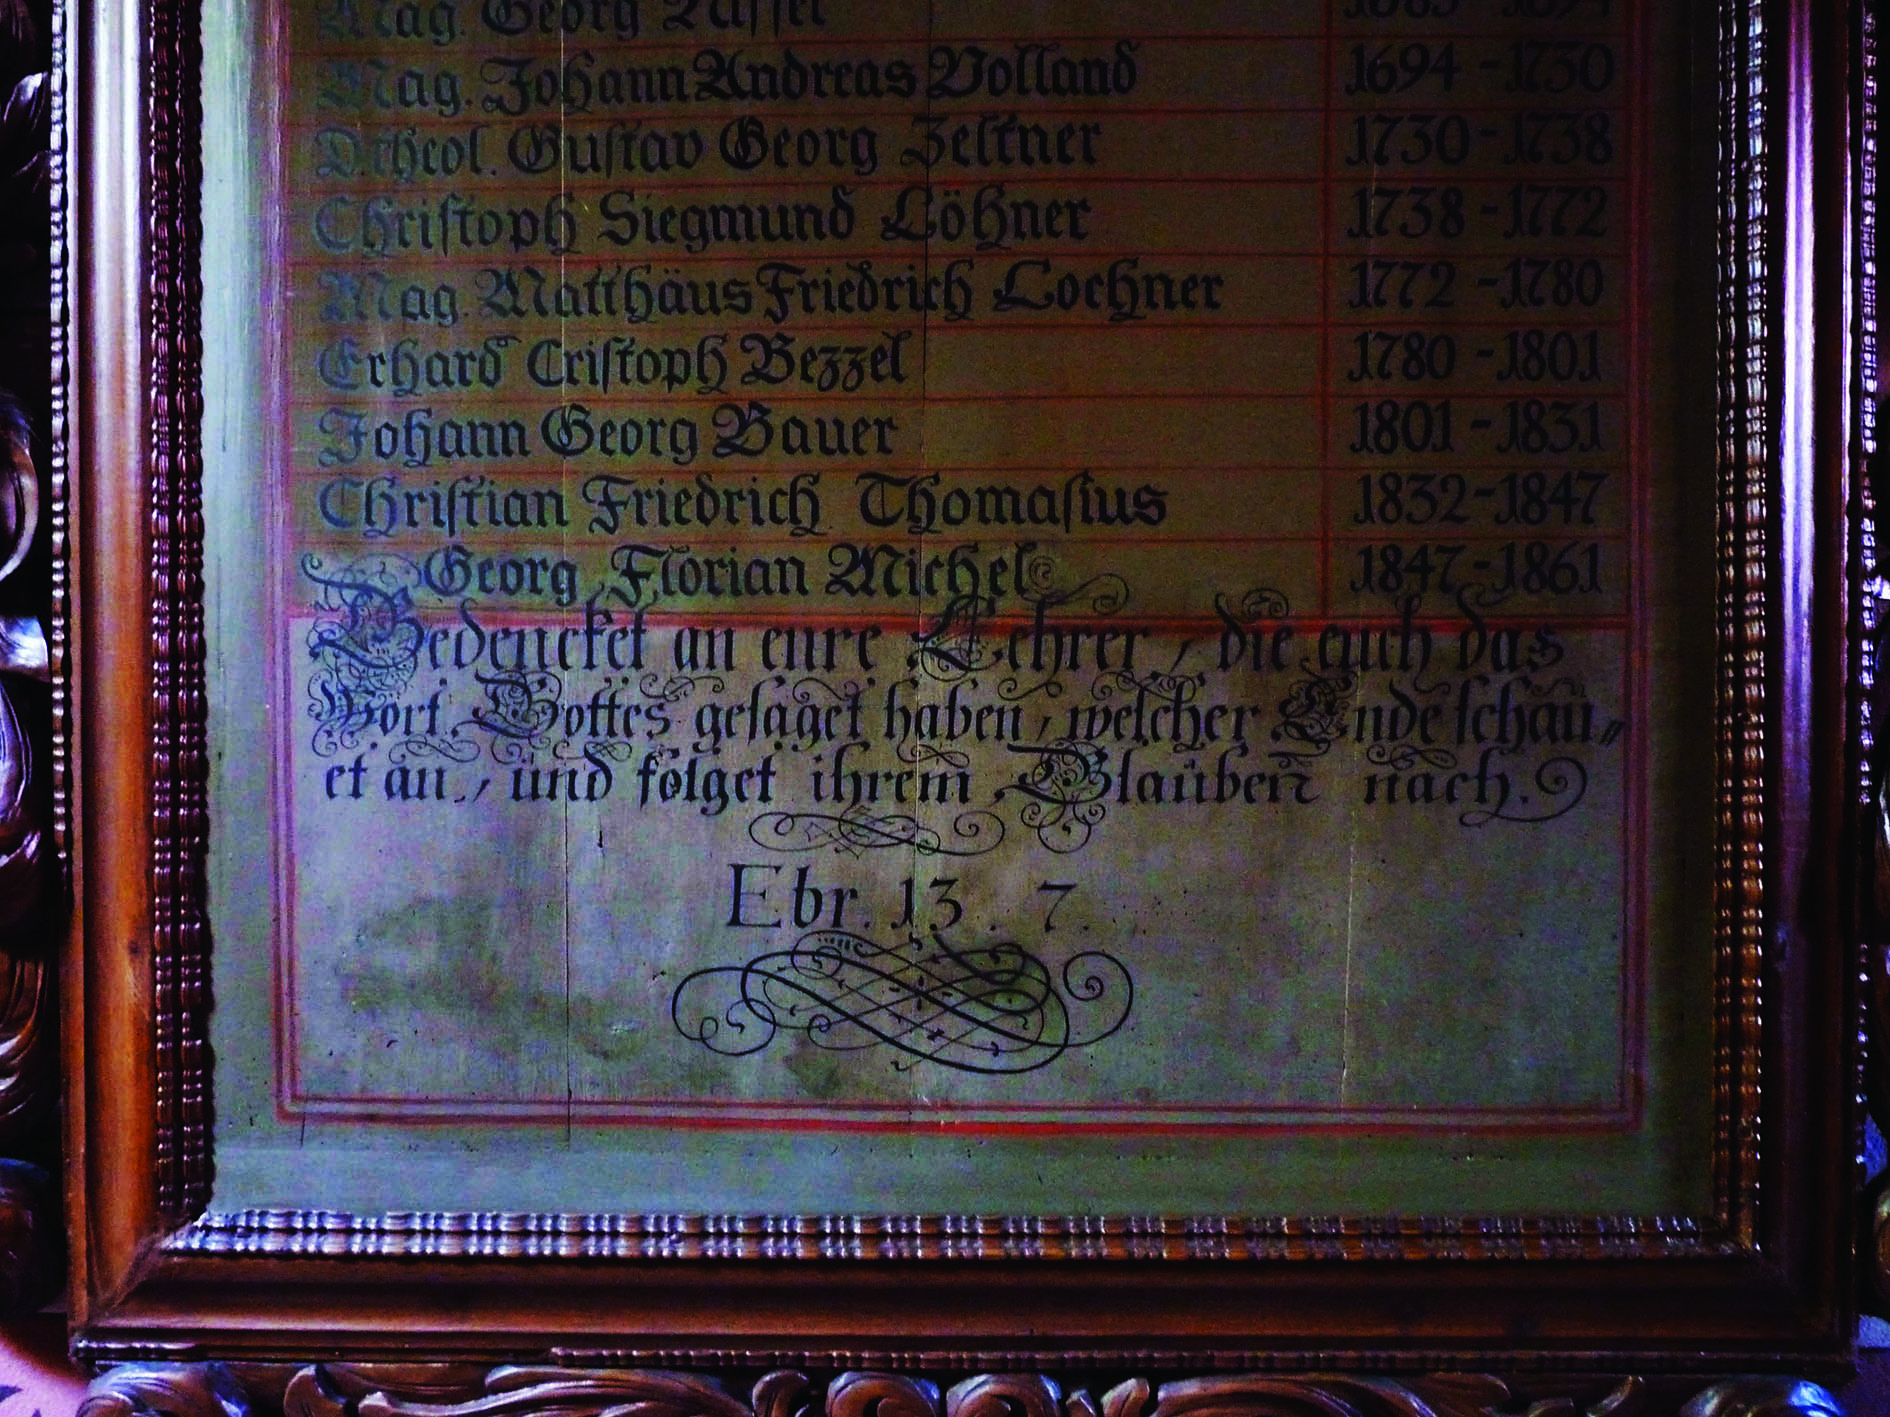 Mag. Georg
Mag. Johann Andreas Volland 1694 - 1730
D. theol. Gustav Georg Zeltner 1730 - 1738
Christoph Siegmund Löhner 1738 - 1772
Mag. Matthäus Friedrich Lochner 1772 - 1780
Erhard Cristoph Bezzel 1780 - 1801
Johann Georg Bauer 1801 - 1831
Christian Friedrich Thomasius 1832 - 1847
Georg Florian Michel 1847 - 1861
Gedencket an eure Lehrer, die euch das
Wort Gottes gesaget haben, welcher Ende schau„
et an, und folget ihrem Glauben nach.
Ebr. 13. 7.